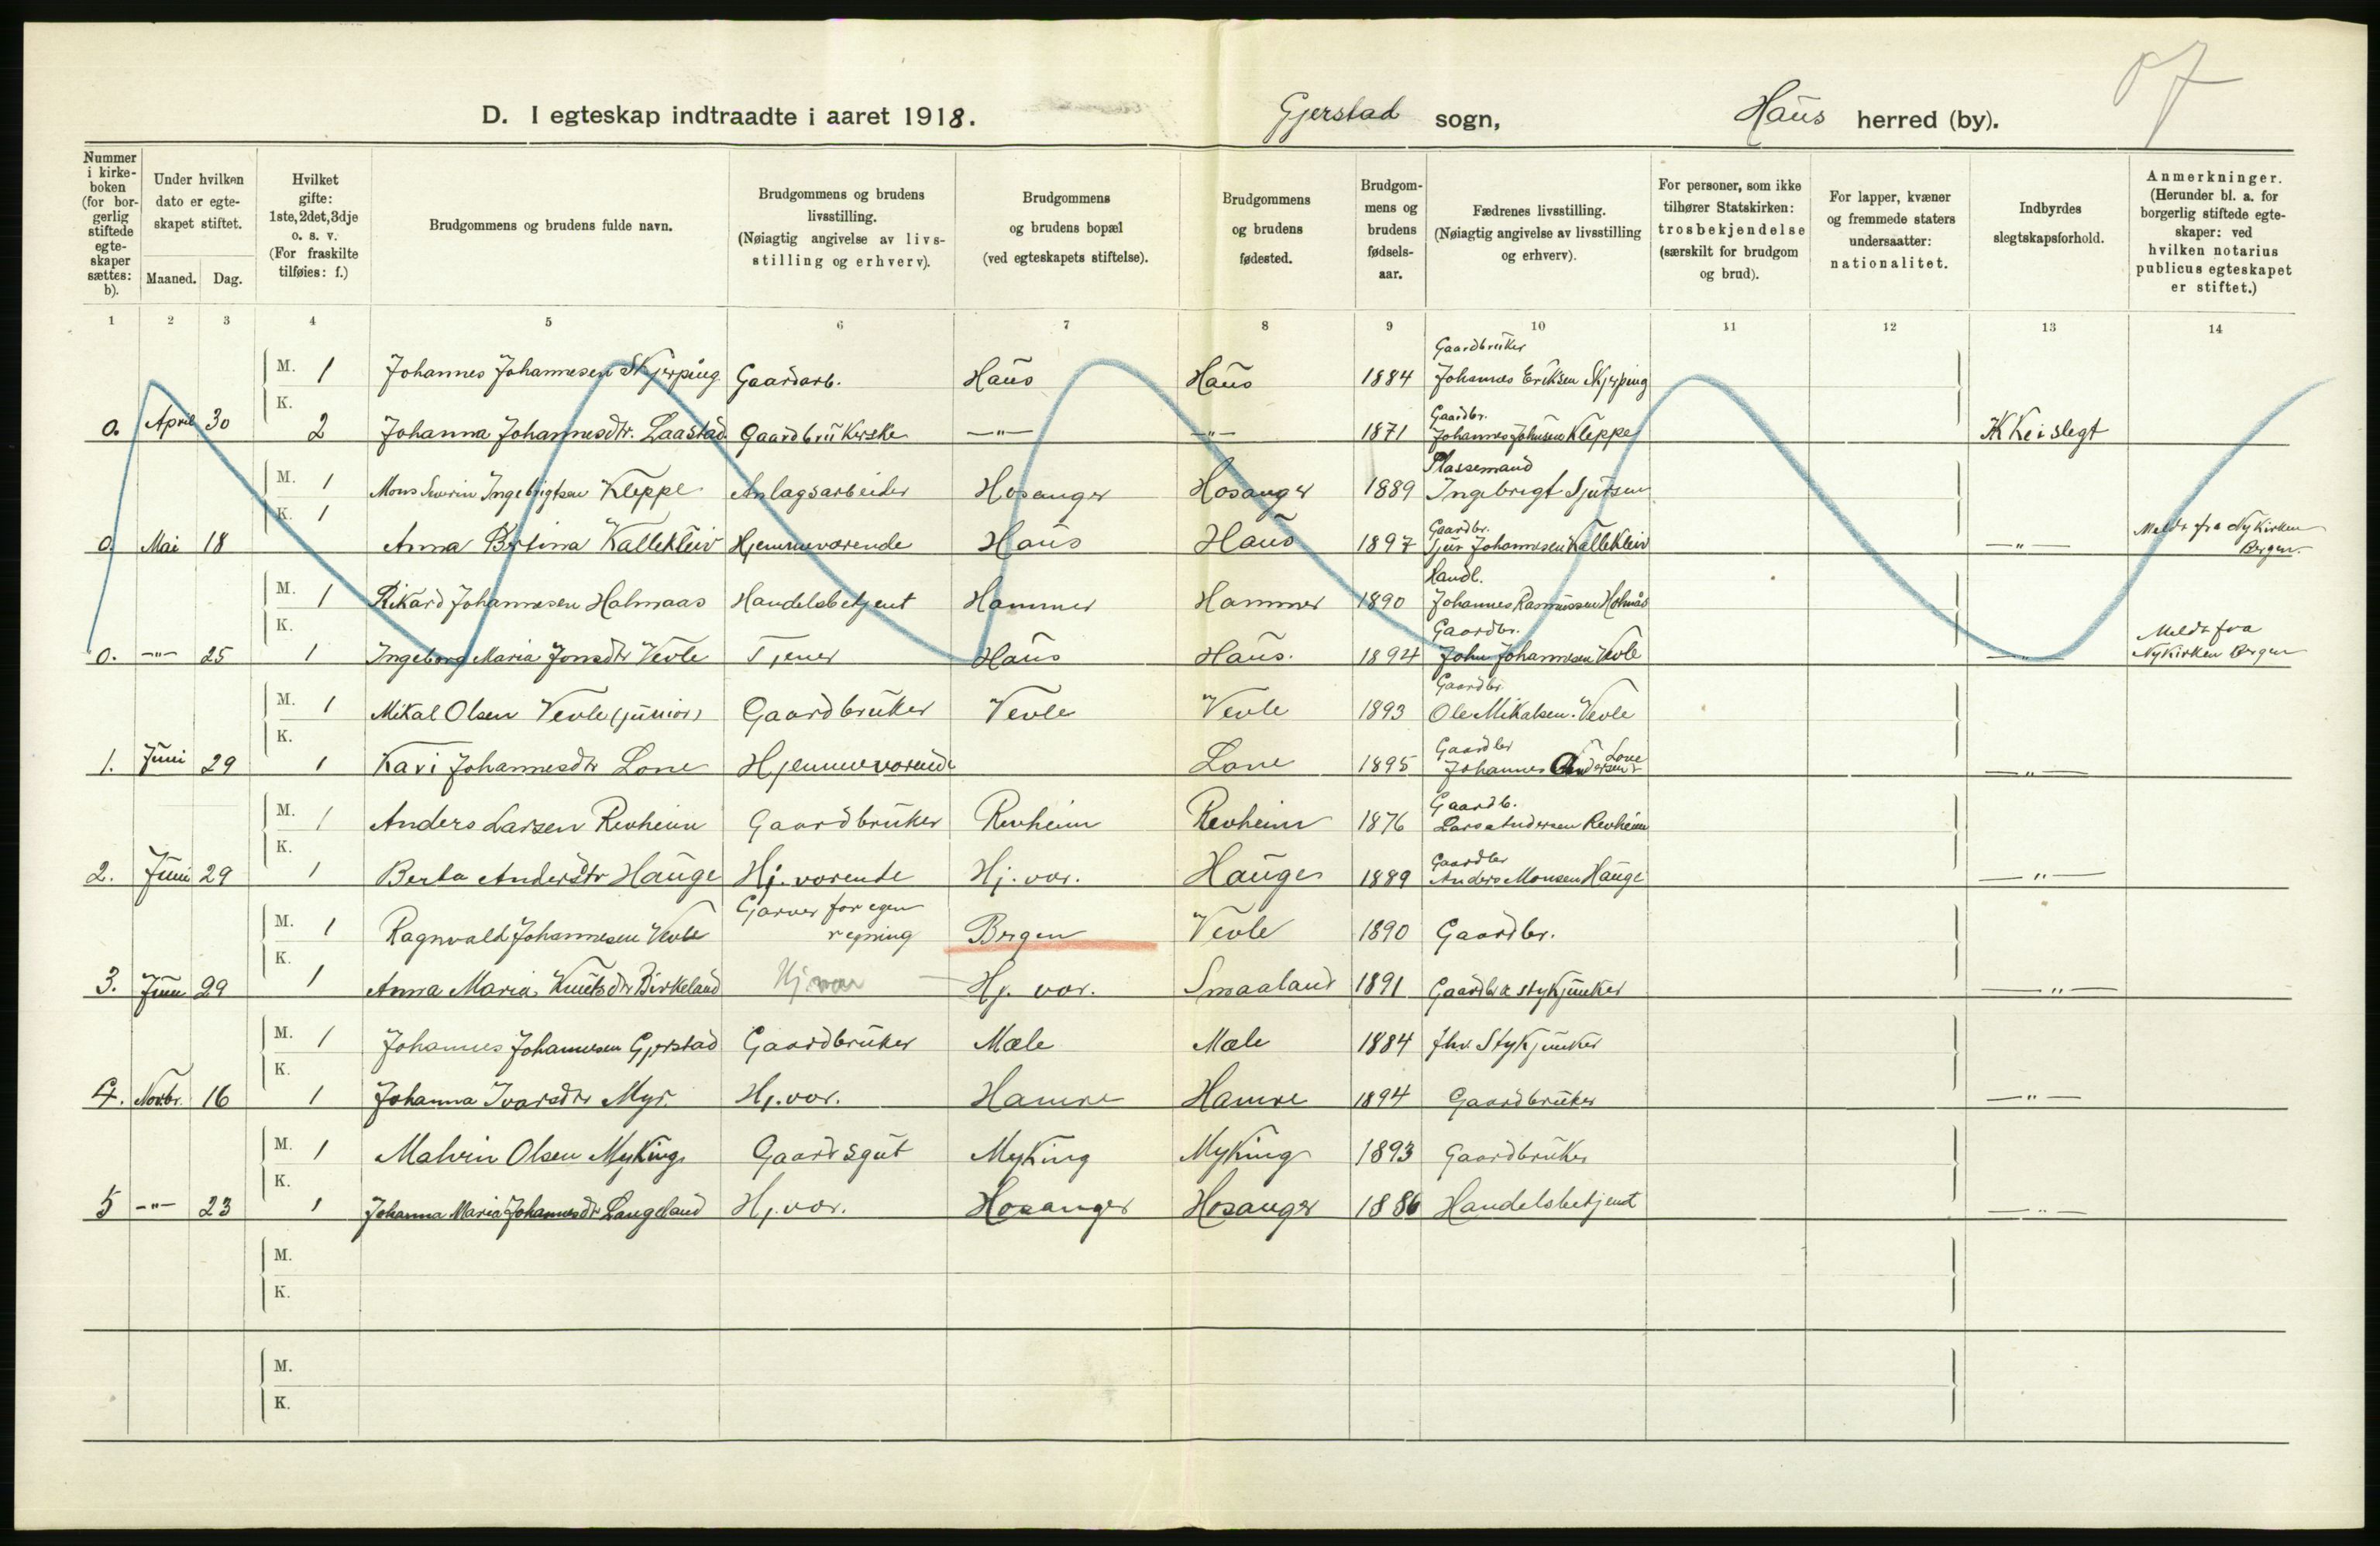 07
D. I egteskap indtraadte i aaret 1918. Gjerstad sogn, Haus herred (by).
Nummer i kirke-boken (for bor-gerlig stiftede egte-skaper sættes: b).
Under hvilken dato er egte-skapet stiftet.
Maaned. Dag.
Hvilket gifte: 1ste, 2det, 3dje o. s. v. (For fraskilte tilføies: f.)
Brudgommens og brudens fulde navn.
Brudgommens og brudens livsstilling. (Nøiagtig angivelse av livs-stilling og erhverv).
Brudgommens og brudens bopæl (ved egteskapets stiftelse).
Brudgommens og brudens fødested.
Brudgom-mens og brudens fødsels-aar.
Fædrenes livsstilling. (Nøiagtig angivelse av livsstilling og erhverv).
For personer, som ikke tilhører Statskirken: trosbekjendelse (særskilt for brudgom og brud).
For lapper, kvæner og fremmede staters undersaatter: nationalitet.
Indbyrdes slegtskapsforhold.
Anmerkninger. (Herunder bl. a. for borgerlig stiftede egte-skaper: ved hvilken notarius publicus egteskapet er stiftet.)
1 2 3 4 5 6 7 8 9 10 11 12 13 14
Gaardbruker
M. 1 Johannes Johannesen Skjerping Gaardarb. Haus Haus 1884 Johannes Eriksen Skjerping
K.
Gaardbr.
0. April 30 2 Johanna Johannesdtr. Laastad Gaardbrukerske —"— —"— 1871 Johannes Johnsen Kleppe Ikke i slegt
Plassemand
M. 1 Mons Severin Ingebrigtsen Kleppe Anlagsarbeider Hosanger Hosanger 1889 Ingebrigt Sjursen
K. 1
Gaardbr. Meldt fra Nykirken
0. Mai 18 Anna Bertina Kallekleiv Hjemmeværende Haus Haus 1897 Sjur Johannesen Kallekleiv —"— Bergen.
Handl.
M. 1 Rikard Johannesen Holmaas Handelsbetjent Hammer Hammer 1890 Johannes Rasmussen Holmås
K.
Gaardbr. Meldt fra
0. —"— 25 1 Ingeborg Maria Jonsdtr Vevle Tjener Haus Haus. 1894 John Johannesen Vevle —"— Nykirken Bergen
Gaardbr
M. 1 Mikal Olsen Vevle (junior) Gaardbruker Vevle Vevle 1893 Ole Mikalsen Vevle
K.
Gaardbr Lone
1. Juni 29 1 Kari Johannesdtr Lone Hjemmeværende Lone 1895 Johannes Andersen —"—
Gaardb.
M. 1 Anders Larsen Revheim Gaardbruker Revheim Revheim 1876 Lars Andersen Revheim
K.
Gaardbr
2. Juni 29 1 Berta Andersdtr Hauge Hj. værende Hj. vær. Hauge 1889 Anders Monsen Hauge —"—
Garver for egen
M. 1 Ragnvald Johannesen Vevle regning Bergen Vevle 1890 Gaardbr.
K.
3. Juni 29 1 Anna Maria Knutsdtr Birkeland Hj. vær Hj. vær. Smaaland 1891 Gaardbr & stykjunker —"—
M. 1 Johannes Johannesen Gjerstad Gaardbruker Mæle Mæle 1884 fhv Stykjunker
K.
4. Novbr. 16 1 Johanna Ivarsdtr Myr. Hj. vær. Hamre Hamre 1894 Gaardbruker —"—
M. 1 Malvin Olsen Myking Gaardsgut Myking Myking 1893 Gaardbruker
K.
5 —"— 23 1 Johanna Maria Johannesdtr Langeland Hj. vær. Hosanger Hosanger 1886 Handelsbetjent —"—
M.
K.
M.
K.